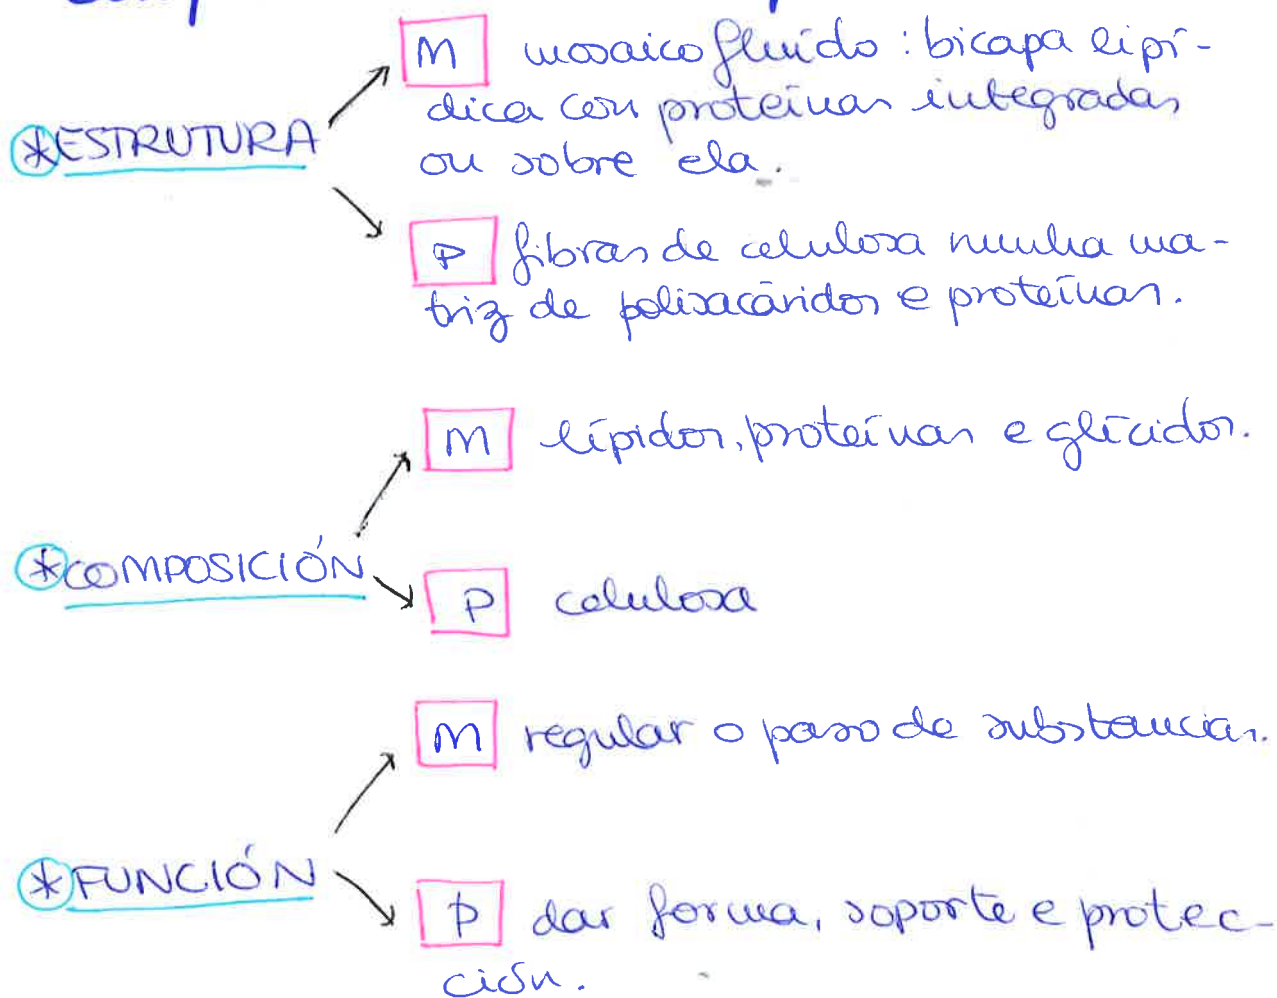 *ESTRUTURA
M mosaico fluído: bicapa lipí-
dica con proteínas integradas
ou sobre ela.
P fibras de celulosa nunha ma-
triz de polisacáridos e proteínas.
*COMPOSICIÓN
M lípidos, proteínas e glícidos.
P celulosa
*FUNCIÓN
M regular o paso de substancias.
P dar forma, soporte e protec-
ción.